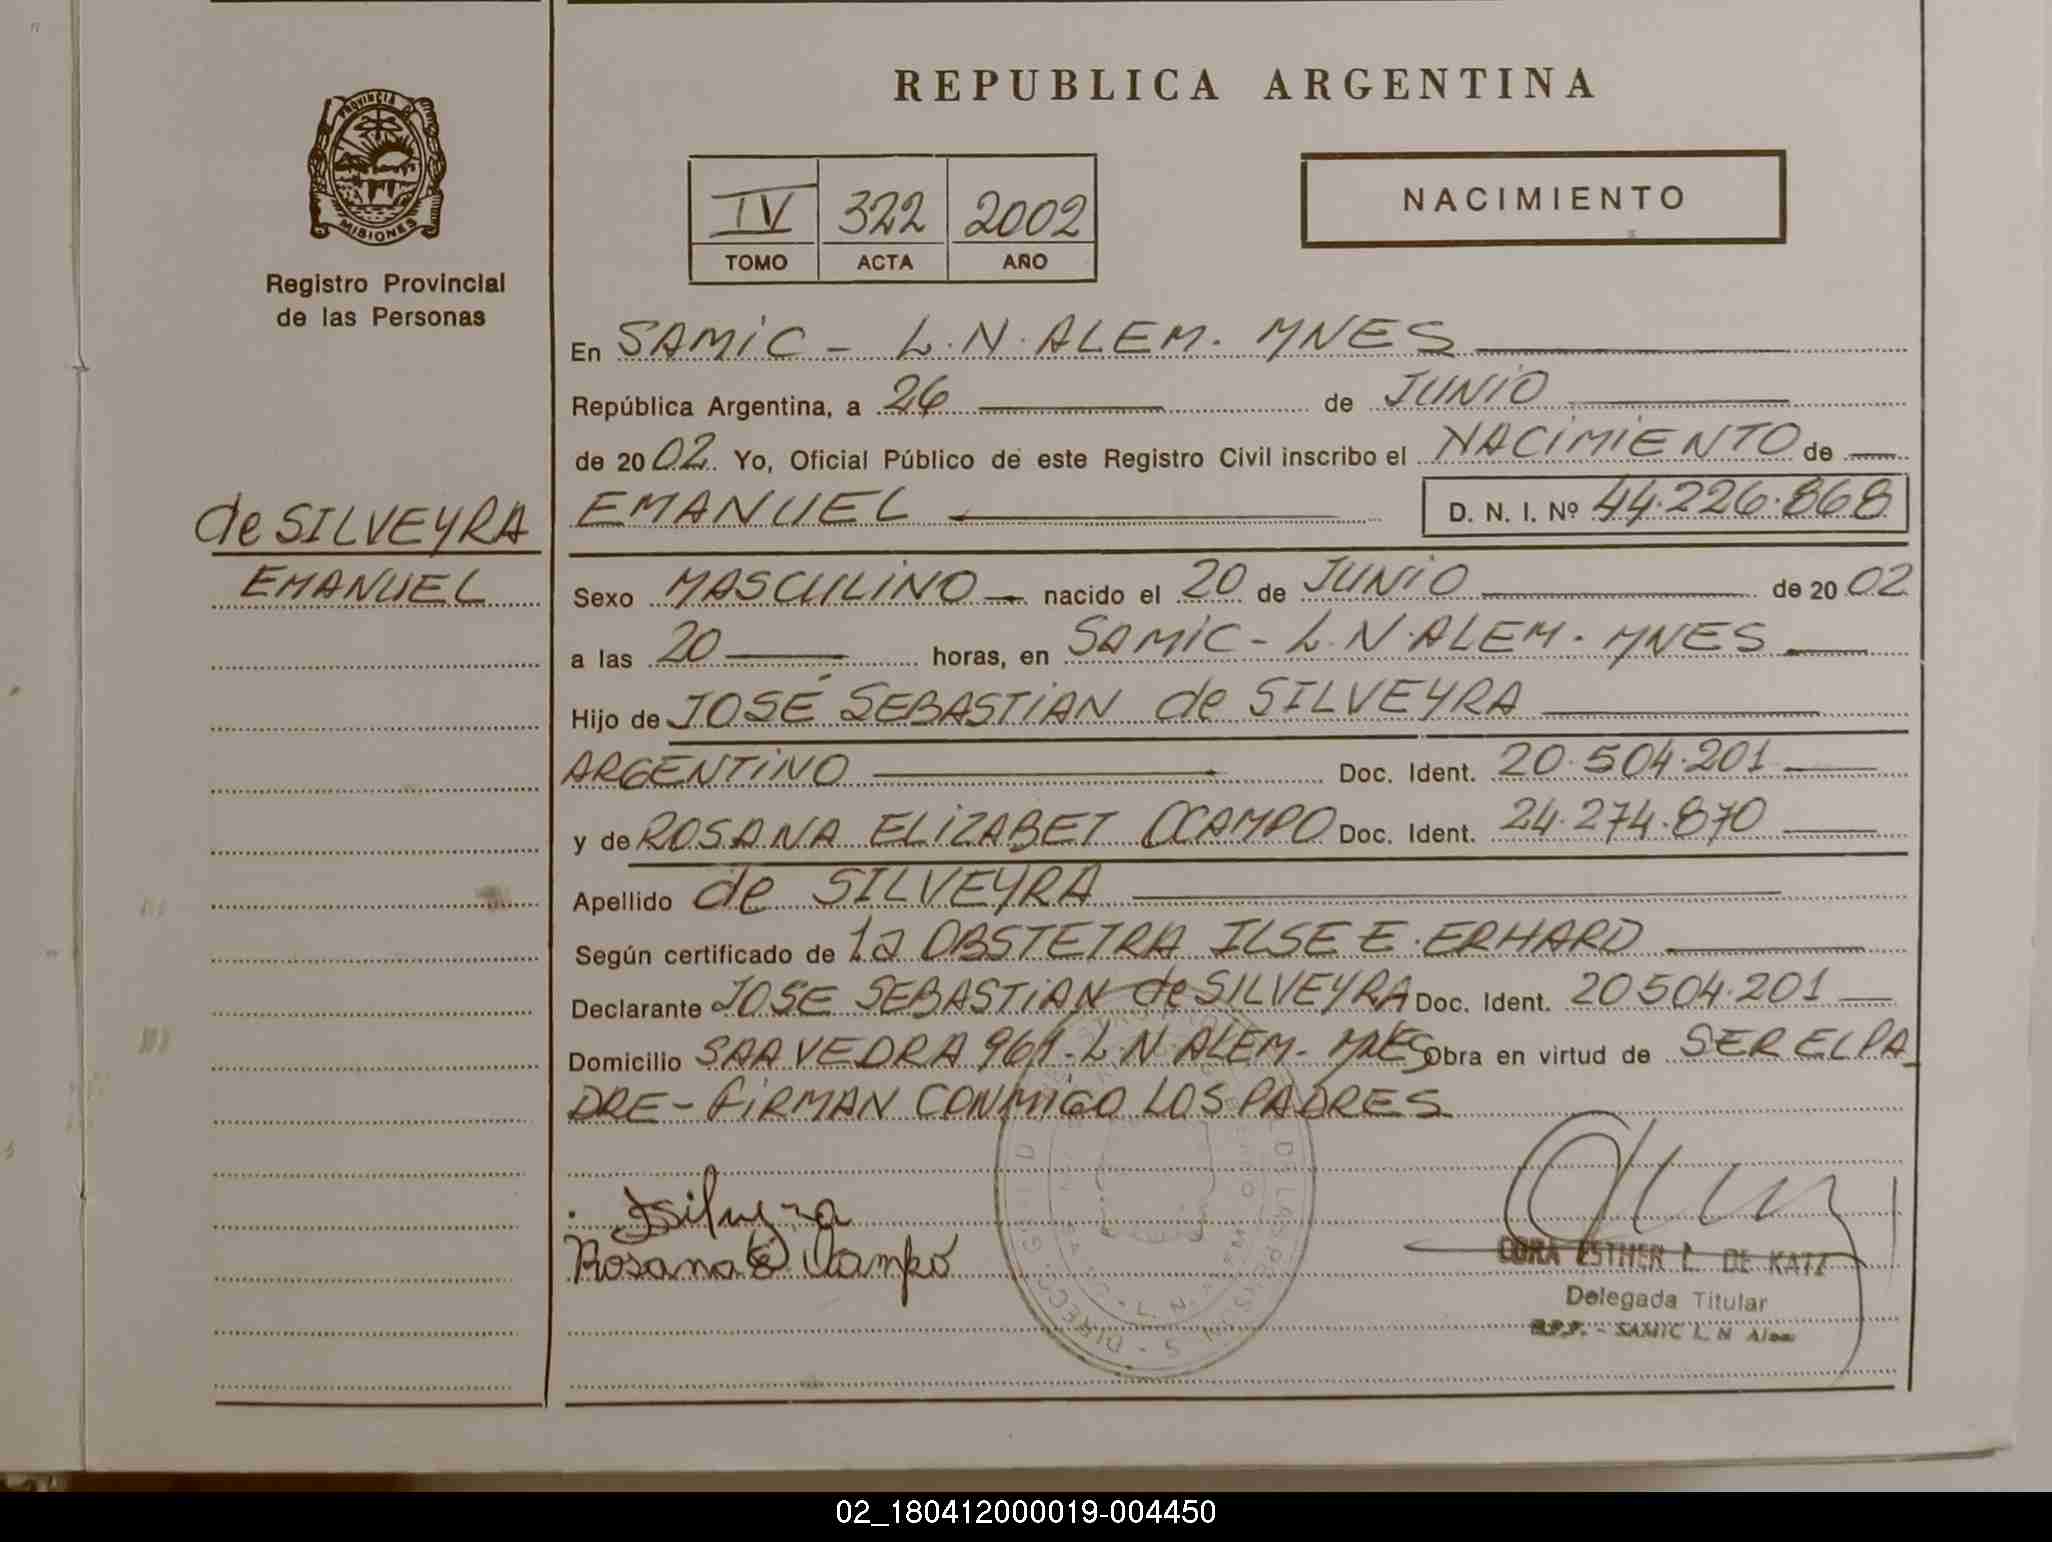 PROVINCIA DE
MISIONES
Registro Provincial
de las Personas
de SILVEYRA
EMANUEL
REPUBLICA ARGENTINA
IV 322 2002
TOMO ACTA AÑO
NACIMIENTO
En SAMIC - L.N. ALEM. MNES
República Argentina, a 26 de JUNIO
de 2002. Yo, Oficial Público de este Registro Civil inscribo el NACIMIENTO de
EMANUEL D. N. I. Nº 44.226.868
Sexo MASCULINO nacido el 20 de JUNIO de 2002
a las 20 horas, en SAMIC - L.N. ALEM. MNES
Hijo de JOSÉ SEBASTIAN de SILVEYRA
ARGENTINO Doc. Ident. 20.504.201
y de ROSANA ELIZABET OCAMPO Doc. Ident. 24.274.870
Apellido de SILVEYRA
Según certificado de la OBSTETRA ILSE E. ERHARD
Declarante JOSE SEBASTIAN de SILVEYRA Doc. Ident. 20504.201
Domicilio SAAVEDRA 969 - L.N ALEM - MNES Obra en virtud de SER EL PA
DRE - FIRMAN CONMIGO LOS PADRES
Rosana E Ocampo
CORA ESTHER L. DE KATZ
Delegada Titular
R.P.P. - SAMIC L. N Alem
02_180412000019-004450